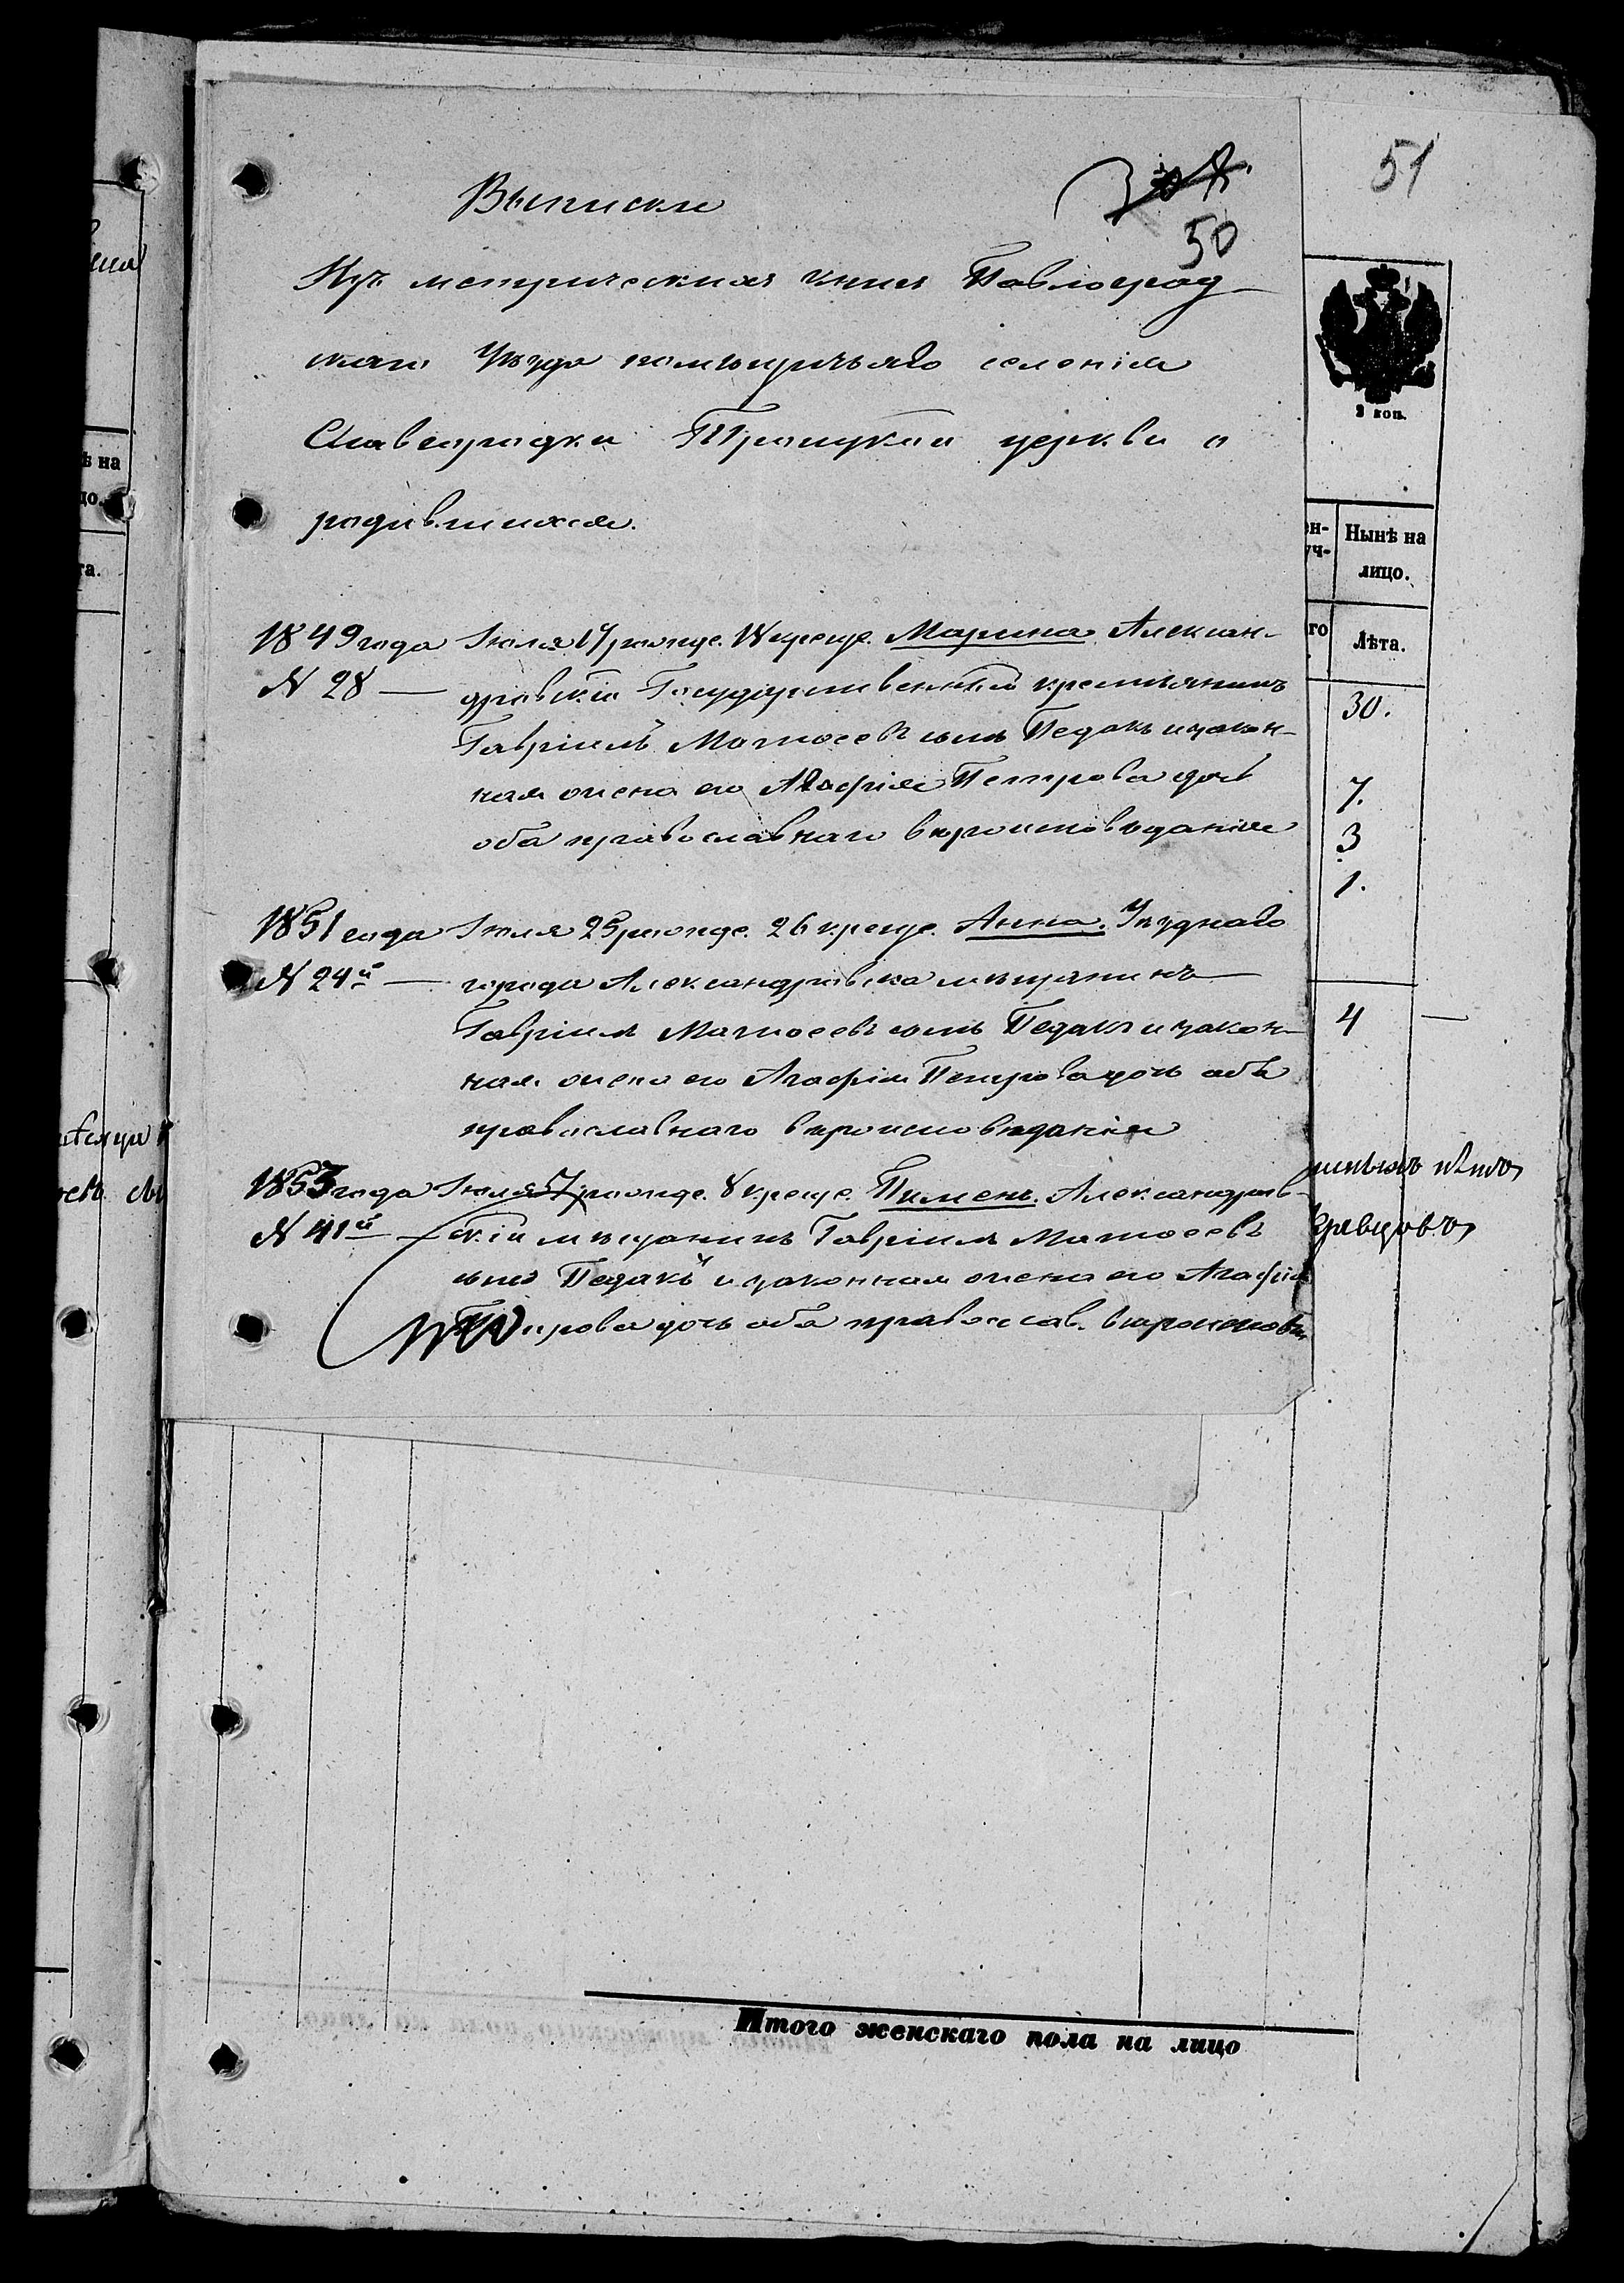 51
Выписки
50
Изъ метрическихъ книгъ Павлоград-
скаго Уѣзда помѣщичьяго селенія
Славгородки Троицкой церкви о
родившихся.
1849 года Іюля 17 рожде. 18 креще. Марина. Алексан-
N 28 — дровскій Государственный крестьянинъ
Гавріилъ Матѳеевъ сынъ Педакъ и закон-
ная жена его Агафія Петрова дочь
оба православнаго вѣроисповѣданія
1851 года Іюля 25 рожде. 26 креще. Анна. Уѣзднаго
N 24й — города Александровска мѣщанинъ
Гавріилъ Матѳеевъ сынъ Педакъ и закон-
ная жена его Агафія Петрова дочь оба
православнаго вѣроисповѣданія
1853 года Іюля 7 рожде. 8 креще. Пименъ. Александров-
N 41й — скій мѣщанинъ Гавріилъ Матѳеевъ
сынъ Педакъ и законная жена его Агафія
Петрова дочь оба православ. вѣроисповѣ.
2 коп.
ен-
уч-
Нынѣ на
лицо.
го
Лѣта.
30.
7.
3
1.
4 —
ѣ на
цо.
та.
Итого женскаго пола на лицо